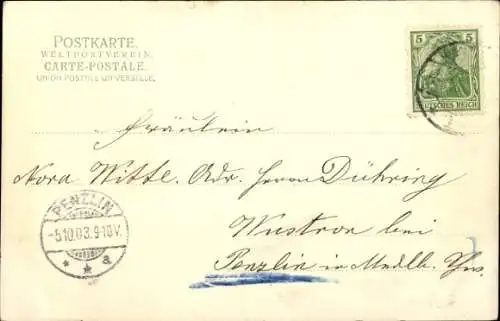 POSTKARTE.
WELTPOSTVEREIN.
CARTE-POSTALE.
UNION POSTALE UNIVERSELLE.
5 5
DEUTSCHES REICH
Fräulein
Nora Witte. Adr. Herrn Dühring
PENZLIN
-5.10.03.9-10V.
* * a
Wustrow bei
Penzlin in Mecklb.